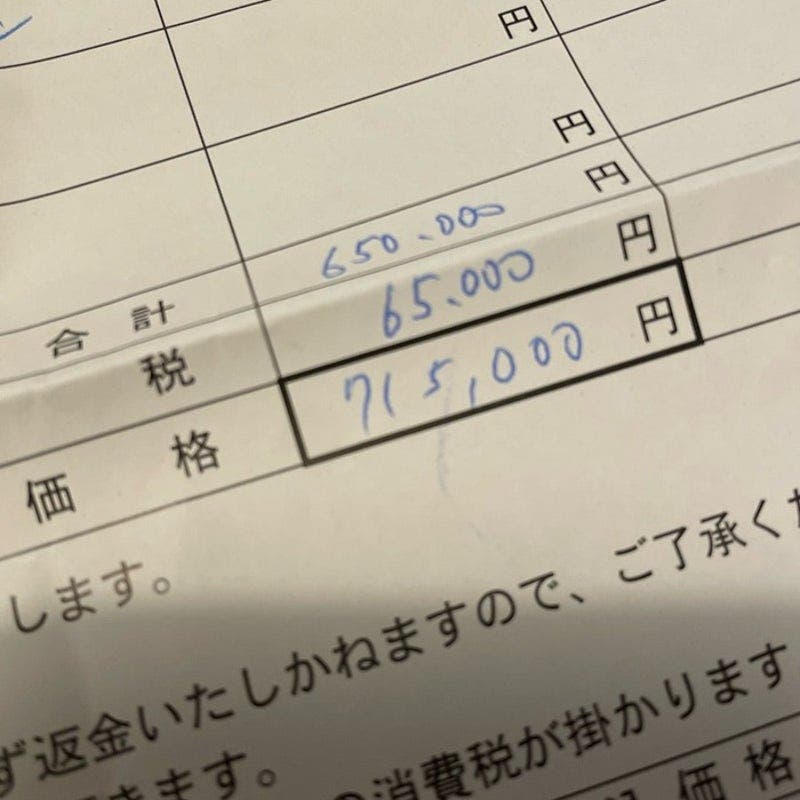 円
円
合計 650.000 円
税 65.000 円
価格 715,000 円
します。
ず返金いたしかねますので、ご了承くだ
きます。
の消費税が掛かります
価格